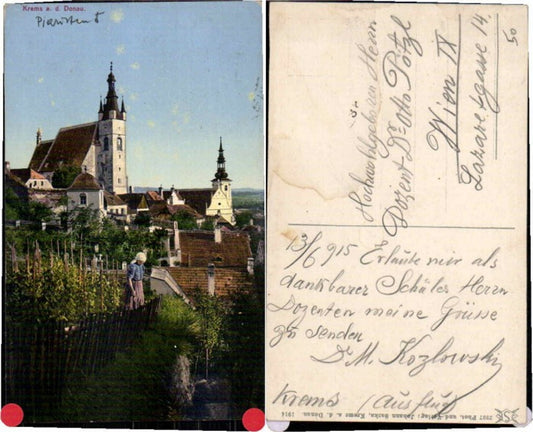 Krems a. d. Donau.
Piaristen
Hochwohlgeboren Herrn
Dozent Dr Otto Pötzl
Wien IX
Lazarettgasse 14
50
13/6 915 Erlaube mir als
dankbarer Schüler Herrn
Dozenten meine Grüsse
zu senden
Dr M. Kozlowski
Krems (Ausflug)
7997 Phot. und Verlag: Johann Sazka, Krems a. d. Donau. 1914